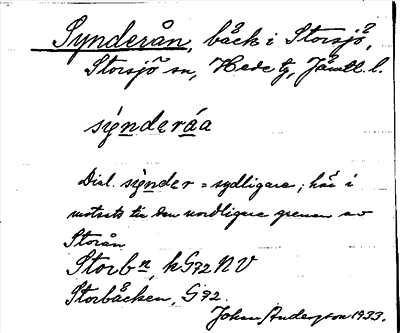 Synderån, bäck i Storsjö,
Storsjö sn, Hede tg, Jämtl. l.
synderáa
Dial. synder = sydligare; här i
motsats till den nordligare grenen av
Storån
Storbn, kG72 NV
Storbäcken, G72.
Johan Anderson 1933.